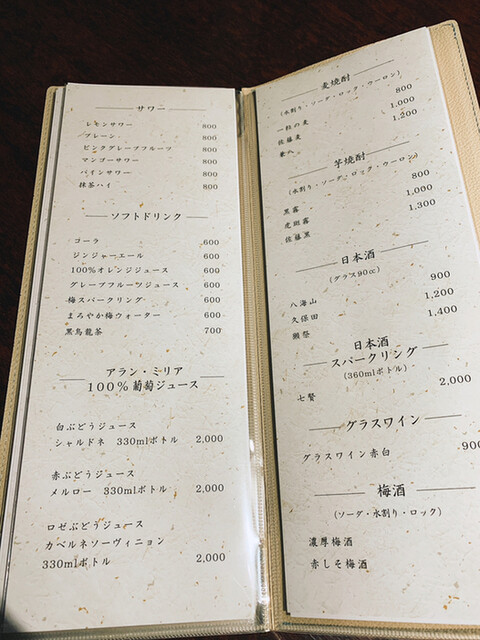 サワー
レモンサワー 800
プレーン 800
ピンクグレープフルーツ 800
マンゴーサワー 800
パインサワー 800
抹茶ハイ 800
ソフトドリンク
コーラ 600
ジンジャーエール 600
100%オレンジジュース 600
グレープフルーツジュース 600
梅スパークリング 600
まろやか梅ウォーター 600
黒烏龍茶 700
アラン・ミリア
100%葡萄ジュース
白ぶどうジュース
シャルドネ 330mlボトル 2,000
赤ぶどうジュース
メルロー 330mlボトル 2,000
ロゼぶどうジュース
カベルネソーヴィニョン
330mlボトル 2,000
麦焼酎
(水割り・ソーダ・ロック・ウーロン)
一粒の麦 800
佐藤麦 1,000
兼八 1,200
芋焼酎
(水割り・ソーダ・ロック・ウーロン)
黒霧 800
虎斑霧 1,000
佐藤黒 1,300
日本酒
(グラス90cc)
八海山 900
久保田 1,200
獺祭 1,400
日本酒
スパークリング
(360mlボトル)
七賢 2,000
グラスワイン
グラスワイン赤白 900
梅酒
(ソーダ・水割り・ロック)
濃厚梅酒
赤しそ梅酒